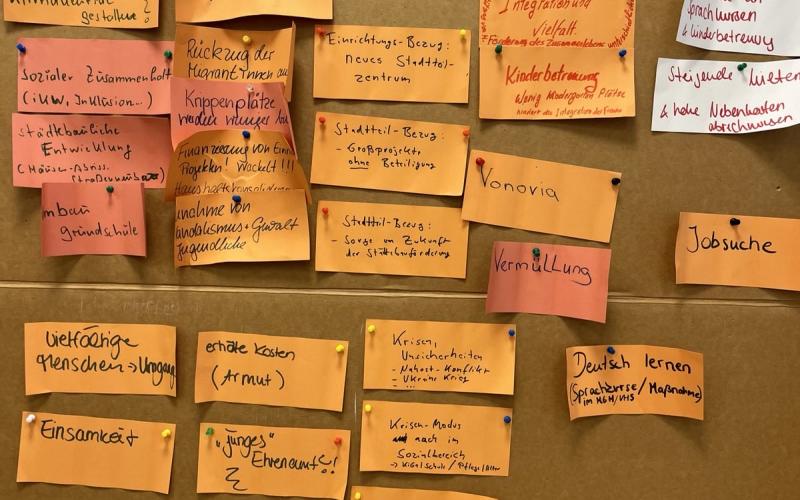 gestalten?
Sozialer Zusammenhalt
(iKW, Inklusion...)
Städtebauliche
Entwicklung
(Häuser-Abriss,
Straßenumbau)
mbau
grundschule
Rückzug der
Migrant*innen au
Krippenplätze
werden weniger
Finanzierung von
Projekten! Wackelt!!!
nahme von
andalismus + Gewalt
Jugendliche
Einrichtungs-Bezug:
neues Stadtteil-
zentrum
Stadtteil-Bezug:
- Großprojekte
ohne Beteiligung
Stadtteil-Bezug:
- Sorge um Zukunft
der Städtebauförderung
Integration und
Vielfalt.
Kinderbetreuung
Wenig Kindergarten Plätze
hindert die Integration der Frauen
Sprachkursen
& Kinderbetreuung
Steigende Mieten
& hohe Nebenkosten
abrechnungen
Vonovia
Vermüllung
Jobsuche
vielfältige
Menschen → Umgang
Einsamkeit
erhöhte Kosten
(Armut)
"junges"
Ehrenamt?!
Krisen,
Unsicherheiten
- Nahost-Konflikt
- Ukraine Krieg
- ...
Krisen-Modus
auch im
Sozialbereich
→ KiGa/Schule/Pflege/Alter
Deutsch lernen
(Sprachkurse/Maßnahme)
im MGH/VHS